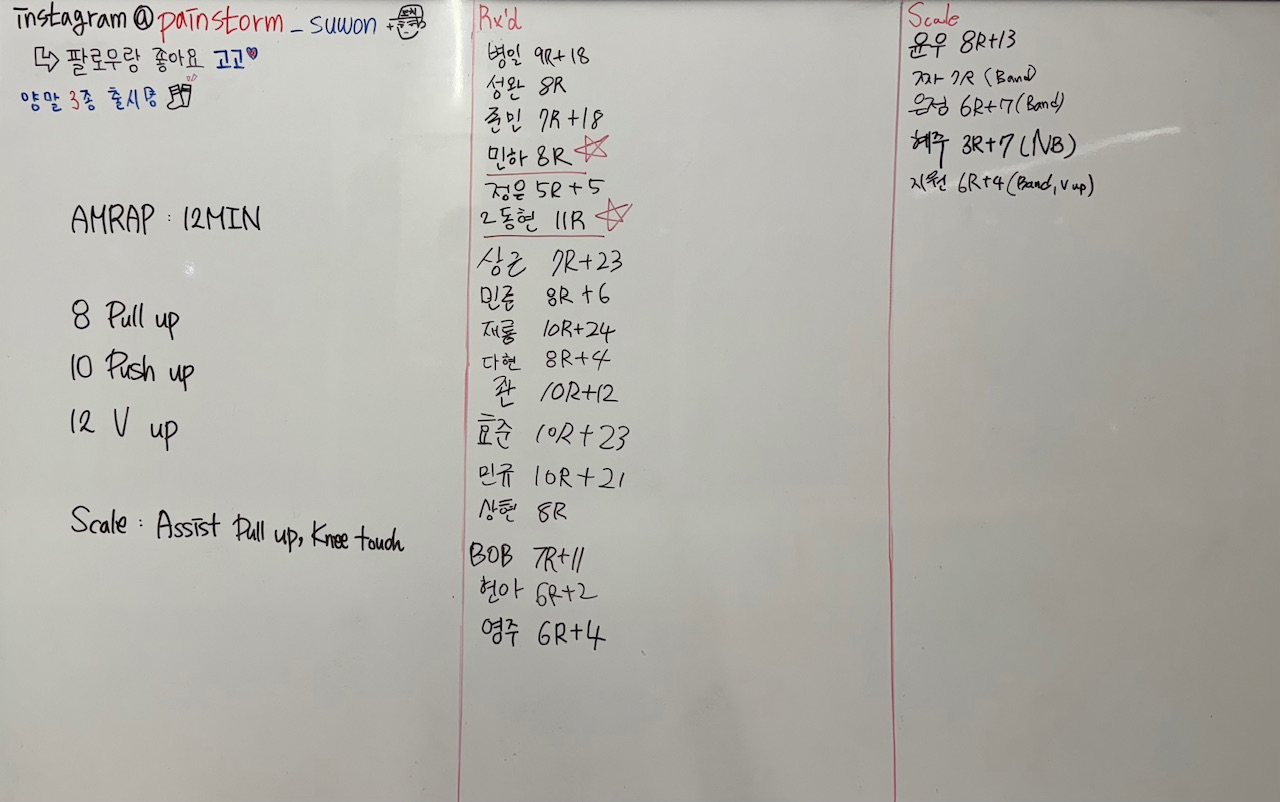 instagram@painstorm_suwon
팔로우랑 좋아요 고고
양말 3종 출시중
AMRAP : 12MIN
8 Pull up
10 Push up
12 V up
Scale : Assist Pull up, Knee touch
Rx'd
병일 9R+18
성완 8R
준민 7R+18
민하 8R
정은 5R+5
2동현 11R
상근 7R+23
민준 8R+6
재룡 10R+24
다현 8R+4
관 10R+12
효준 10R+23
민규 10R+21
상현 8R
BOB 7R+11
현아 6R+2
영주 6R+4
Scale
윤우 8R+13
7R (Band)
은정 6R+7(Band)
혜주 3R+7(NB)
지원 6R+4(Band, V up)